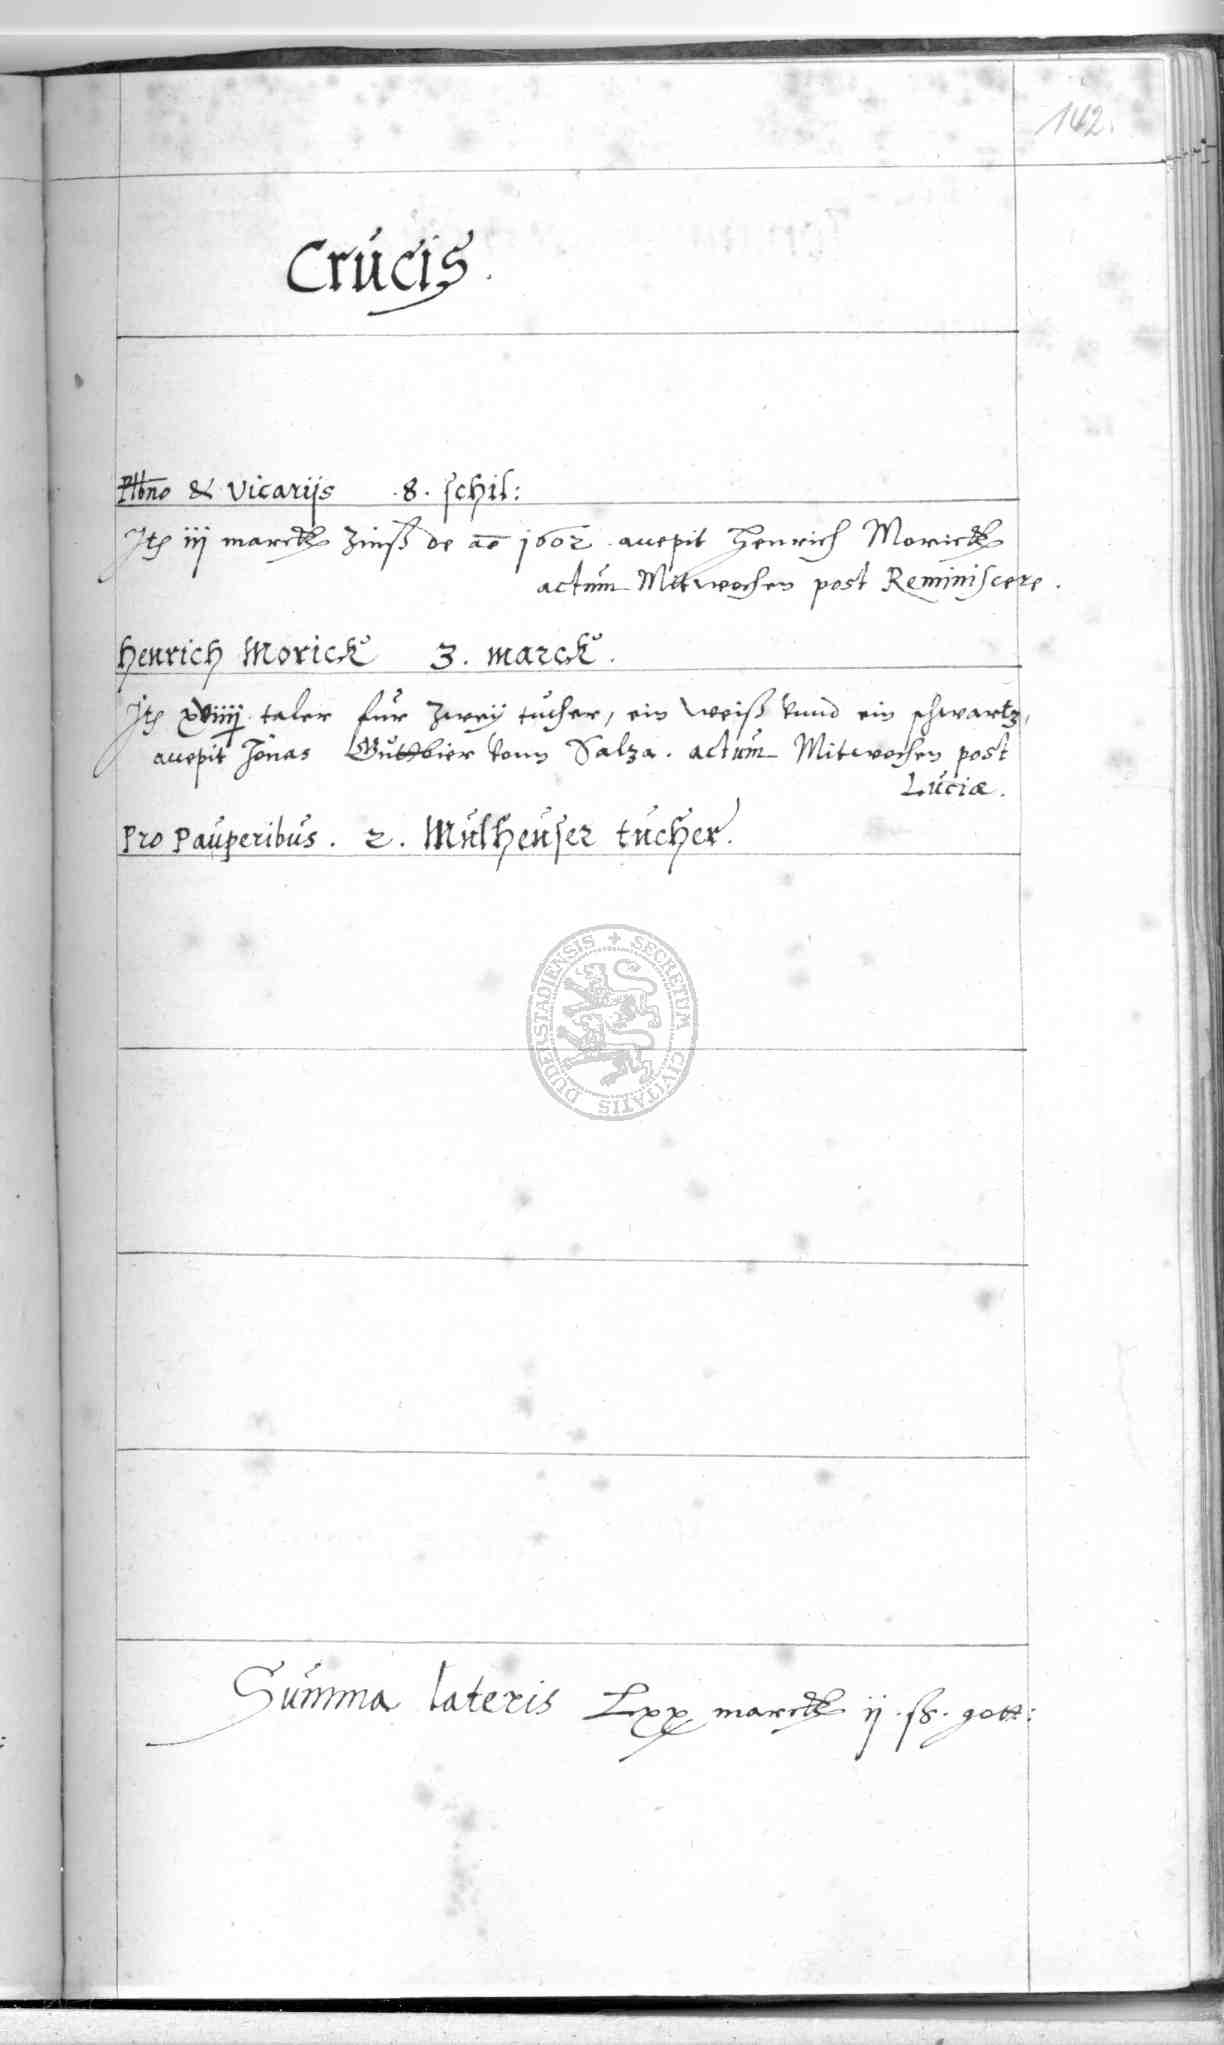 142.
Crucis.
Plbno & Vicarijs .8. schil:
Ite iij marck Zinß de ao 1602. accepit Henrich Morick
actum Mitwochen post Reminiscere.
Henrich Morick 3. marck.
Ite taler fur zweij tucher, ein weiß vnnd ein schwartz,
accepit Jonas Guttbier vonn Salza. actum Mitwochen post
Luciæ.
Pro Pauperibus. 2. Mulheuser tucher.
SECRETUM CIVITATIS DUDERSTADIENSIS
Summa lateris Lxx marck ij. ß. gott: